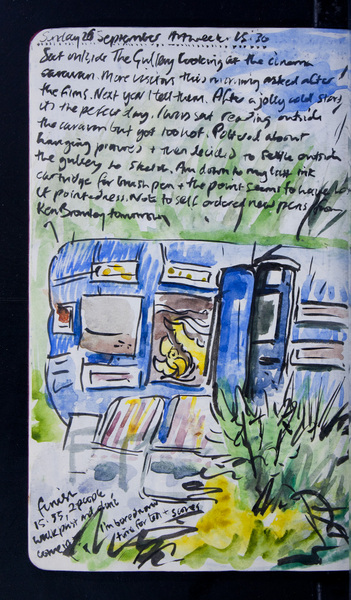 Sunday 28 September Artweek 15:30
Sat outside The Gallery looking at the cinema
caravan. More visitors this morning asked after
the films. Next year I tell them. After a jolly cold start
it's the perfect day. I was sat reading outside
the caravan but got too hot. about
hanging pictures + then decided to settle outside
the gallery to sketch. Am down to my last ink
cartridge for brush pen + the point seems to have lost
it pointedness. Note to self ordered new pens from
Ken Bromley tomorrow
finish
15:55, 2 people
walk past and don't
come in.
I'm bored now
time for tea + scones